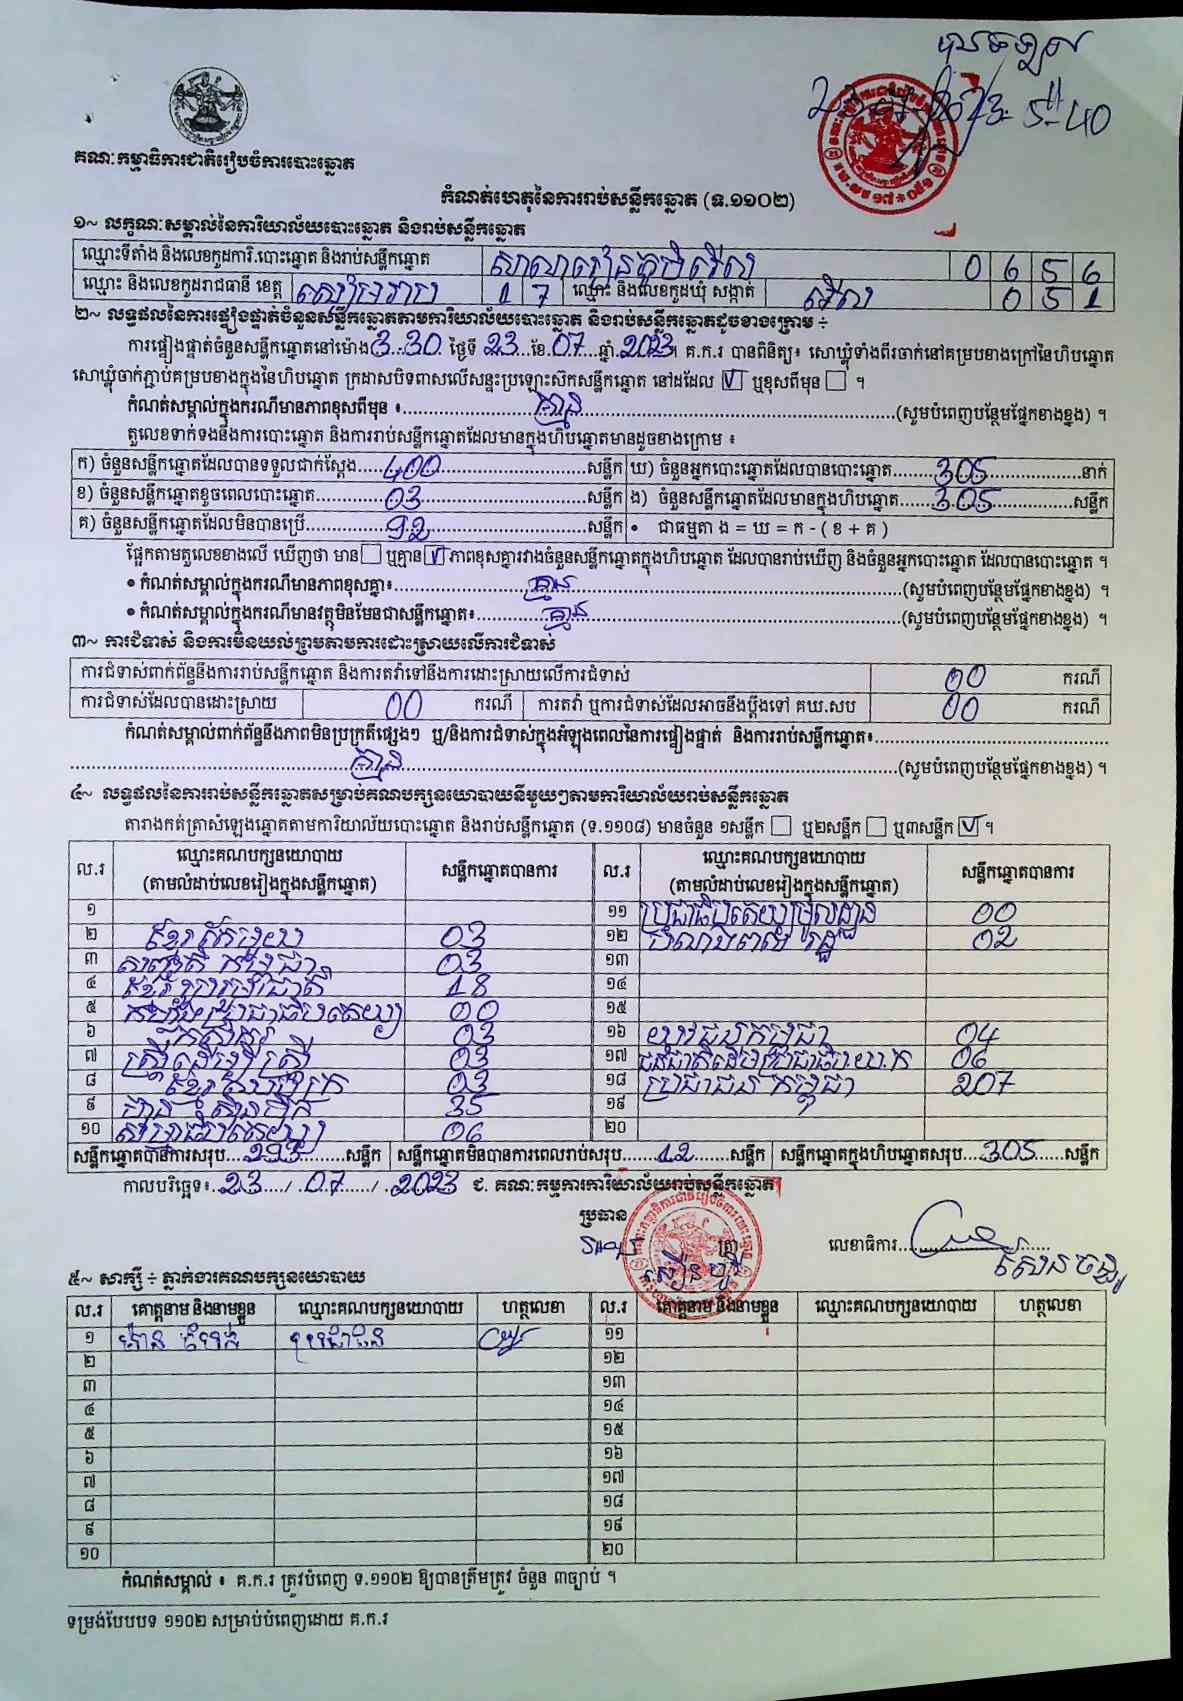 បានឃើញ
23-07-2023 5:40
គណៈកម្មាធិការជាតិរៀបចំការបោះឆ្នោត
កំណត់ហេតុនៃការរាប់សន្លឹកឆ្នោត (ទ.១១០២)
១~ លក្ខណៈសម្គាល់នៃការិយាល័យបោះឆ្នោត និងរាប់សន្លឹកឆ្នោត
ឈ្មោះទីតាំង និងលេខកូដការិ.បោះឆ្នោត និងរាប់សន្លឹកឆ្នោត សាលារៀនភូមិវើល 0 6 5 6
ឈ្មោះ និងលេខកូដរាជធានី ខេត្ត សៀមរាប 1 7 ឈ្មោះ និងលេខកូដឃុំ សង្កាត់ វើល 0 5 1
២~ លទ្ធផលនៃការផ្ទៀងផ្ទាត់ចំនួនសន្លឹកឆ្នោតតាមការិយាល័យបោះឆ្នោត និងរាប់សន្លឹកឆ្នោតដូចខាងក្រោម ÷
ការផ្ទៀងផ្ទាត់ចំនួនសន្លឹកឆ្នោតនៅម៉ោង 3:30 ថ្ងៃទី 23 ខែ 07 ឆ្នាំ 2023។ គ.ក.រ បានពិនិត្យ៖ សោឃ្លុំទាំងពីរចាក់នៅគម្របខាងក្រៅនៃហិបឆ្នោត
សោឃ្លុំចាក់ភ្ជាប់គម្របខាងក្នុងនៃហិបឆ្នោត ក្រដាសបិទពាសលើសន្ទះប្រឡោះស៊កសន្លឹកឆ្នោត នៅដដែល ☑ ឬខុសពីមុន ☐ ។
កំណត់សម្គាល់ក្នុងករណីមានភាពខុសពីមុន ៖ គ្មាន (សូមបំពេញបន្ថែមផ្នែកខាងខ្នង) ។
តួលេខទាក់ទងនឹងការបោះឆ្នោត និងការរាប់សន្លឹកឆ្នោតដែលមានក្នុងហិបឆ្នោតមានដូចខាងក្រោម ៖
ក) ចំនួនសន្លឹកឆ្នោតដែលបានទទួលជាក់ស្តែង 400 សន្លឹក ឃ) ចំនួនអ្នកបោះឆ្នោតដែលបានបោះឆ្នោត 305 នាក់
ខ) ចំនួនសន្លឹកឆ្នោតខូចពេលបោះឆ្នោត 03 សន្លឹក ង) ចំនួនសន្លឹកឆ្នោតដែលមានក្នុងហិបឆ្នោត 305 សន្លឹក
គ) ចំនួនសន្លឹកឆ្នោតដែលមិនបានប្រើ 92 សន្លឹក • ជាធម្មតា ង = ឃ = ក - ( ខ + គ )
ផ្អែកតាមតួលេខខាងលើ ឃើញថា មាន ☐ ឬគ្មាន ☑ ភាពខុសគ្នារវាងចំនួនសន្លឹកឆ្នោតក្នុងហិបឆ្នោត ដែលបានរាប់ឃើញ និងចំនួនអ្នកបោះឆ្នោត ដែលបានបោះឆ្នោត ។
• កំណត់សម្គាល់ក្នុងករណីមានភាពខុសគ្នា៖ គ្មាន (សូមបំពេញបន្ថែមផ្នែកខាងខ្នង) ។
• កំណត់សម្គាល់ក្នុងករណីមានវត្ថុមិនមែនជាសន្លឹកឆ្នោត៖ គ្មាន (សូមបំពេញបន្ថែមផ្នែកខាងខ្នង) ។
៣~ ការជំទាស់ និងការមិនយល់ព្រមតាមការដោះស្រាយលើការជំទាស់
ការជំទាស់ពាក់ព័ន្ធនឹងការរាប់សន្លឹកឆ្នោត និងការតវ៉ាទៅនឹងការដោះស្រាយលើការជំទាស់ 00 ករណី
ការជំទាស់ដែលបានដោះស្រាយ 00 ករណី ការតវ៉ា ឬការជំទាស់ដែលអាចនឹងប្តឹងទៅ គឃ.សប 00 ករណី
កំណត់សម្គាល់ពាក់ព័ន្ធនឹងភាពមិនប្រក្រតីផ្សេងៗ ឬ/និងការជំទាស់ក្នុងអំឡុងពេលនៃការផ្ទៀងផ្ទាត់ និងការរាប់សន្លឹកឆ្នោត៖
គ្មាន (សូមបំពេញបន្ថែមផ្នែកខាងខ្នង) ។
៤~ លទ្ធផលនៃការរាប់សន្លឹកឆ្នោតសម្រាប់គណបក្សនយោបាយនីមួយៗតាមការិយាល័យរាប់សន្លឹកឆ្នោត
តារាងកត់ត្រាសំឡេងឆ្នោតតាមការិយាល័យបោះឆ្នោត និងរាប់សន្លឹកឆ្នោត (ទ.១១០៨) មានចំនួន ១សន្លឹក ☐ ឬ២សន្លឹក ☐ ឬ៣សន្លឹក ☑ ។
ល.រ ឈ្មោះគណបក្សនយោបាយ (តាមលំដាប់លេខរៀងក្នុងសន្លឹកឆ្នោត) សន្លឹកឆ្នោតបានការ ល.រ ឈ្មោះគណបក្សនយោបាយ (តាមលំដាប់លេខរៀងក្នុងសន្លឹកឆ្នោត) សន្លឹកឆ្នោតបានការ
១ ១១ ប្រជាធិបតេយ្យមូលដ្ឋាន 00
២ ខ្មែររួតរួមយ 03 ១២ ជំលាងពលរដ្ឋ 02
៣ សញ្ជាតិ កម្ពុជា 03 ១៣
៤ ខ្មែរ រួបរួមជាតិ 18 ១៤
៥ កម្លាំងប្រជាធិបតេយ្យ 00 ១៥
៦ កសិករ 03 ១៦ យុវជនកម្ពុជា 04
៧ ស្ត្រីដើម្បីស្ត្រី 03 ១៧ ជនជាតិដើមប្រជាធិ.យ.ក 06
៨ ខ្មែរ អភិរក្ស 03 ១៨ ប្រជាជន កម្ពុជា 207
៩ ហ្វ៊ុនស៊ិនប៉ិច 35 ១៩
១០ សម្បុកឃ្មុំ 06 ២០
សន្លឹកឆ្នោតបានការសរុប 293 សន្លឹក សន្លឹកឆ្នោតមិនបានការពេលរាប់សរុប 12 សន្លឹក សន្លឹកឆ្នោតក្នុងហិបឆ្នោតសរុប 305 សន្លឹក
កាលបរិច្ឆេទ៖ 23 / 07 / 2023 ជ. គណៈកម្មការការិយាល័យរាប់សន្លឹកឆ្នោត
ប្រធាន
ត្រា លេខាធិការ
៥~ សាក្សី ÷ ភ្នាក់ងារគណបក្សនយោបាយ
ល.រ គោត្តនាម និងនាមខ្លួន ឈ្មោះគណបក្សនយោបាយ ហត្ថលេខា ល.រ គោត្តនាម និងនាមខ្លួន ឈ្មោះគណបក្សនយោបាយ ហត្ថលេខា
១ ប្រជាជន ១១
២ ១២
៣ ១៣
៤ ១៤
៥ ១៥
៦ ១៦
៧ ១៧
៨ ១៨
៩ ១៩
១០ ២០
កំណត់សម្គាល់ ៖ គ.ក.រ ត្រូវបំពេញ ទ.១១០២ ឱ្យបានត្រឹមត្រូវ ចំនួន ៣ច្បាប់ ។
ទម្រង់បែបបទ ១១០២ សម្រាប់បំពេញដោយ គ.ក.រ